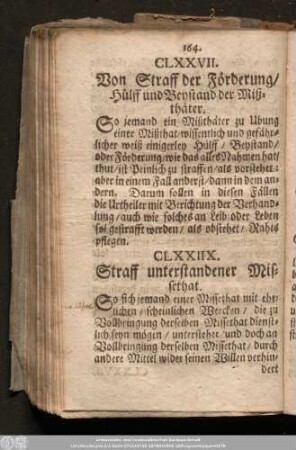 164.
CLXXVII.
Von Straff der Förderung/
Hülff und Beystand der Miß-
thäter.
So jemand ein Mißthäter zu Ubung
einer Mißthat/wissentlich und gefähr-
licher weiß einigerley Hülff / Beystand/
oder Förderung/wie das alles Nahmen hat/
thut/ist Peinlich zu straffen/als vorstehet:
aber in einem Fall anderst/dann in dem an-
dern. Darum sollen in diesen Fällen
die Urtheiler mit Berichtung der Verhand-
lung/auch wie solches an Leib oder Leben
sol gestrafft werden/ als obstehet/ Rahts
pflegen.
CLXXIIX.
Straff unterstandener Mis-
sethat.
So sich jemand einer Missethat mit etli-
chen / scheinlichen Wercken / die zu
Vollbringung derselben Missethat dienst-
lich seyn mögen / unterstehet / und doch an
Vollbringung derselben Missethat / durch
andere Mittel wider seinen Willen verhin-
dert